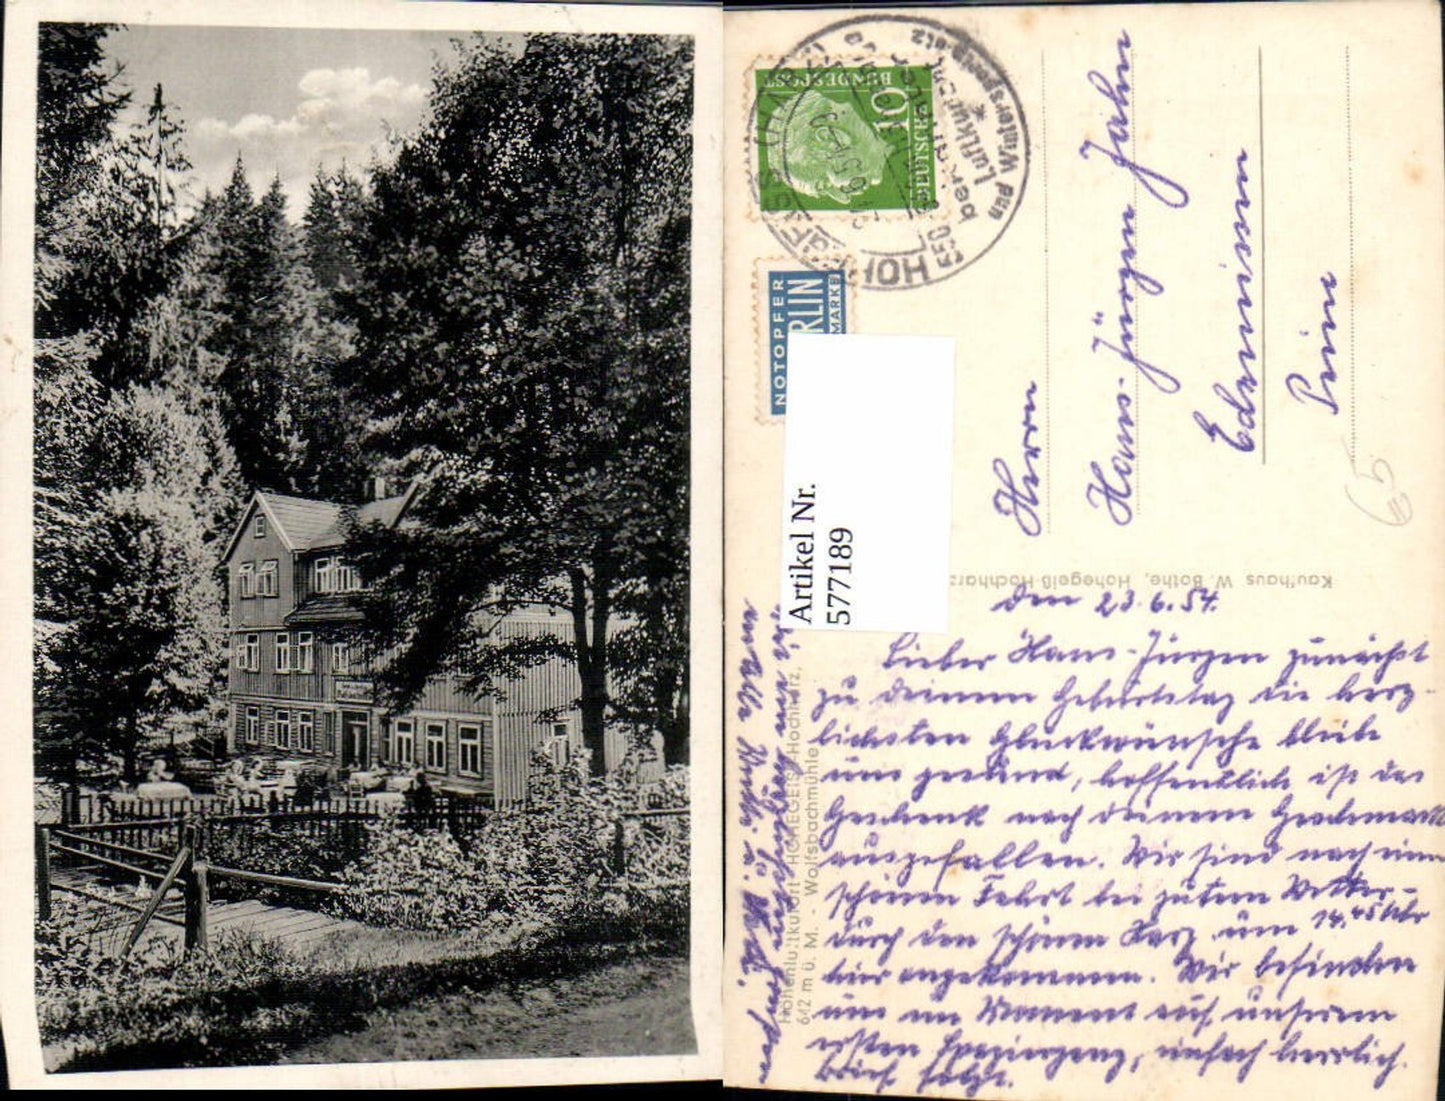 DEUTSCHE
BUNDESPOST
10
HOHEGEISS
Luftkurort
und Wintersportplatz
NOTOPFER
BERLIN
MARKE
Artikel Nr.
577189
Herrn
Hans-Jürgen Jahn
Edemissen
Peine
65
Kaufhaus W. Bothe, Hohegeiß-Hochharz
Höhenluftkurort HOHEGEISS/Hochharz,
642 m ü. M. - Wolfsbachmühle
den 23.6.54.
Lieber Hans-Jürgen zunächst
zu deinem Geburtstag die herz-
lichsten Glückwünsche bleibe
uns gesund, hoffentlich ist das
Geschenk nach deinem Geschmack
ausgefallen. Wir sind nach einer
schönen Fahrt bei gutem Wetter
durch den schönen Harz um 14.45 Uhr
hier angekommen. Wir befinden
uns im Moment auf unserem
ersten Spaziergang, einfach herrlich.
Brief folgt.